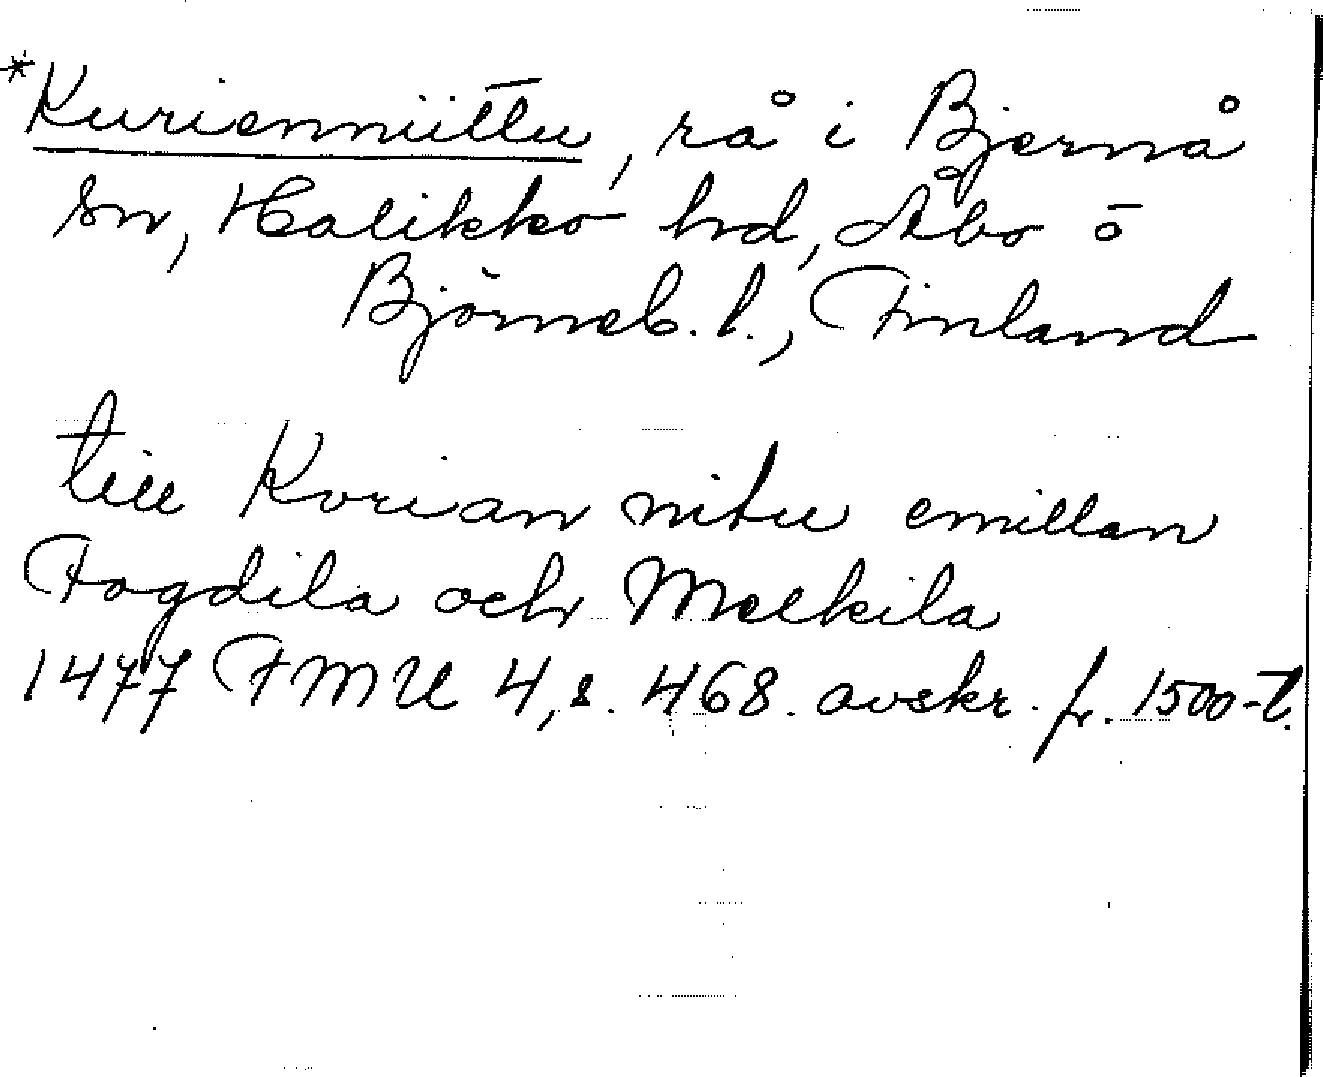 *Kurienniittu, rå i Bjernå
sn, Halikko hd, Åbo o
Björneb. l., Finland
till Korian nitu emillan
Fogdila och Melkila
1477 FMU 4, s. 468. avskr. fr. 1500-t.